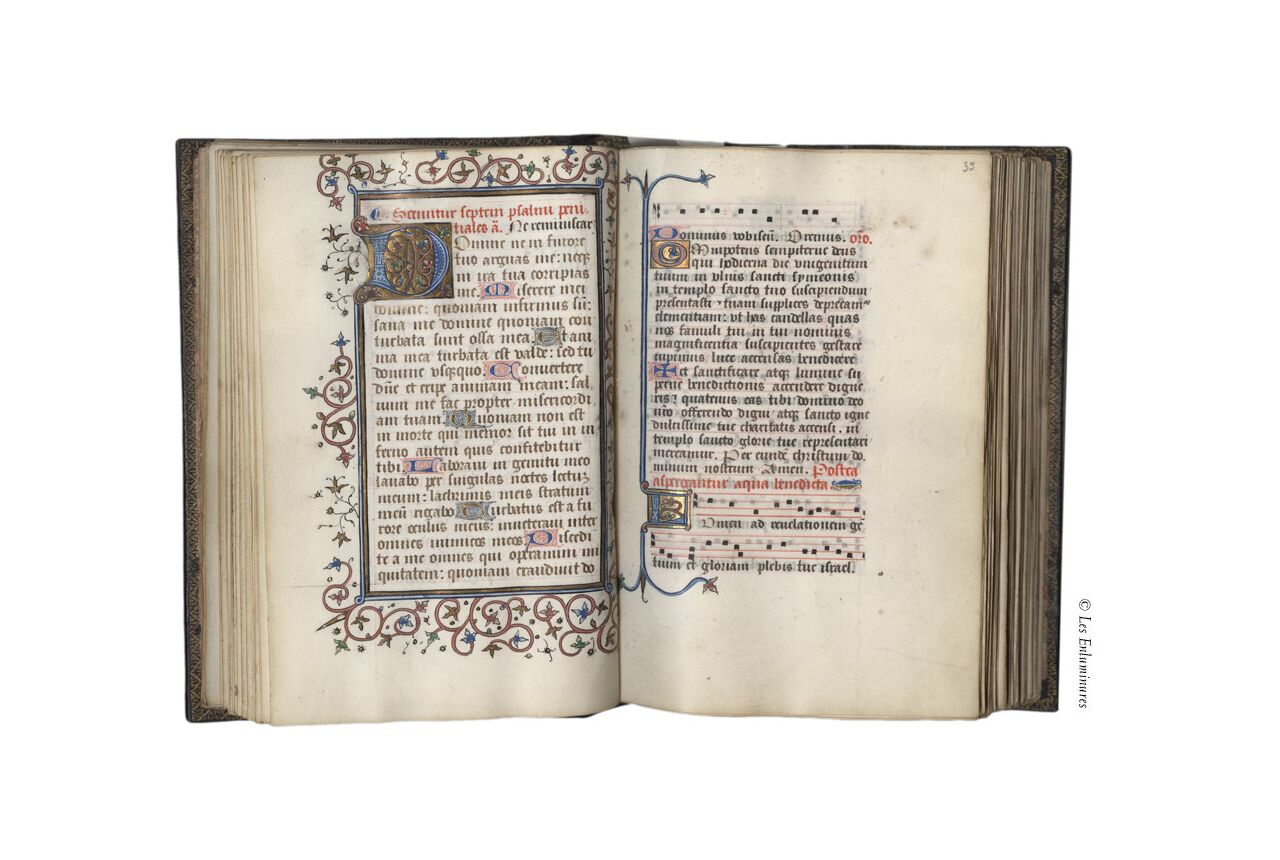 Secuntur septem psalmi peni-
tiales añ. Ne reminiscar
Domine ne in furore
tuo arguas me: neqꝫ
in ira tua corripias
me. Miserere mei
domine: quoniam infirmus sū:
sana me domine quoniam con
turbata sunt ossa mea. Et ani
ma mea turbata est valde: sed tu
domine vsquequo. Conuertere
dñe et eripe animam meam: sal
uum me fac propter misericordi
am tuam. Quoniam non est
in morte qui memor sit tui in in
ferno autem quis confitebitur
tibi. Laboraui in gemitu meo
lauabo per singulas noctes lectuꝫ
meum: lachrimis meis stratum
meū rigabo. Turbatus est a fu
rore oculus meus: inueteraui inter
omnes inimicos meos. Discedi
te a me omnes qui operamini ini
quitatem: quoniam exaudiuit do
35
Dominus vobiscū. Oremus. orõ.
Omnipotens sempiterne deus
qui hodierna die vnigenitum
tuum in vlnis sancti symeonis
in templo sancto tuo suscipiendum
presentasti: tuam supplices deprecamʳ
clementiam: vt has candellas quas
nos famuli tui in tui nominis
magnificentia suscipientes gestare
cupimus luce accensas benedicere
✠ et sanctificare atqꝫ lumine su
perne benedictionis accendere digne
ris: quatenus eas tibi domino deo
nr̃o offerendo digni atqꝫ sancto igne
dulcissime tue charitatis accensi. in
templo sancto glorie tue representari
mereamur. Per eundē christum do
minum nostrum Amen. Postea
aspergantur aqua benedicta
Lumen ad reuelationem gē
tium et gloriam plebis tue israel.
© Les Enluminures